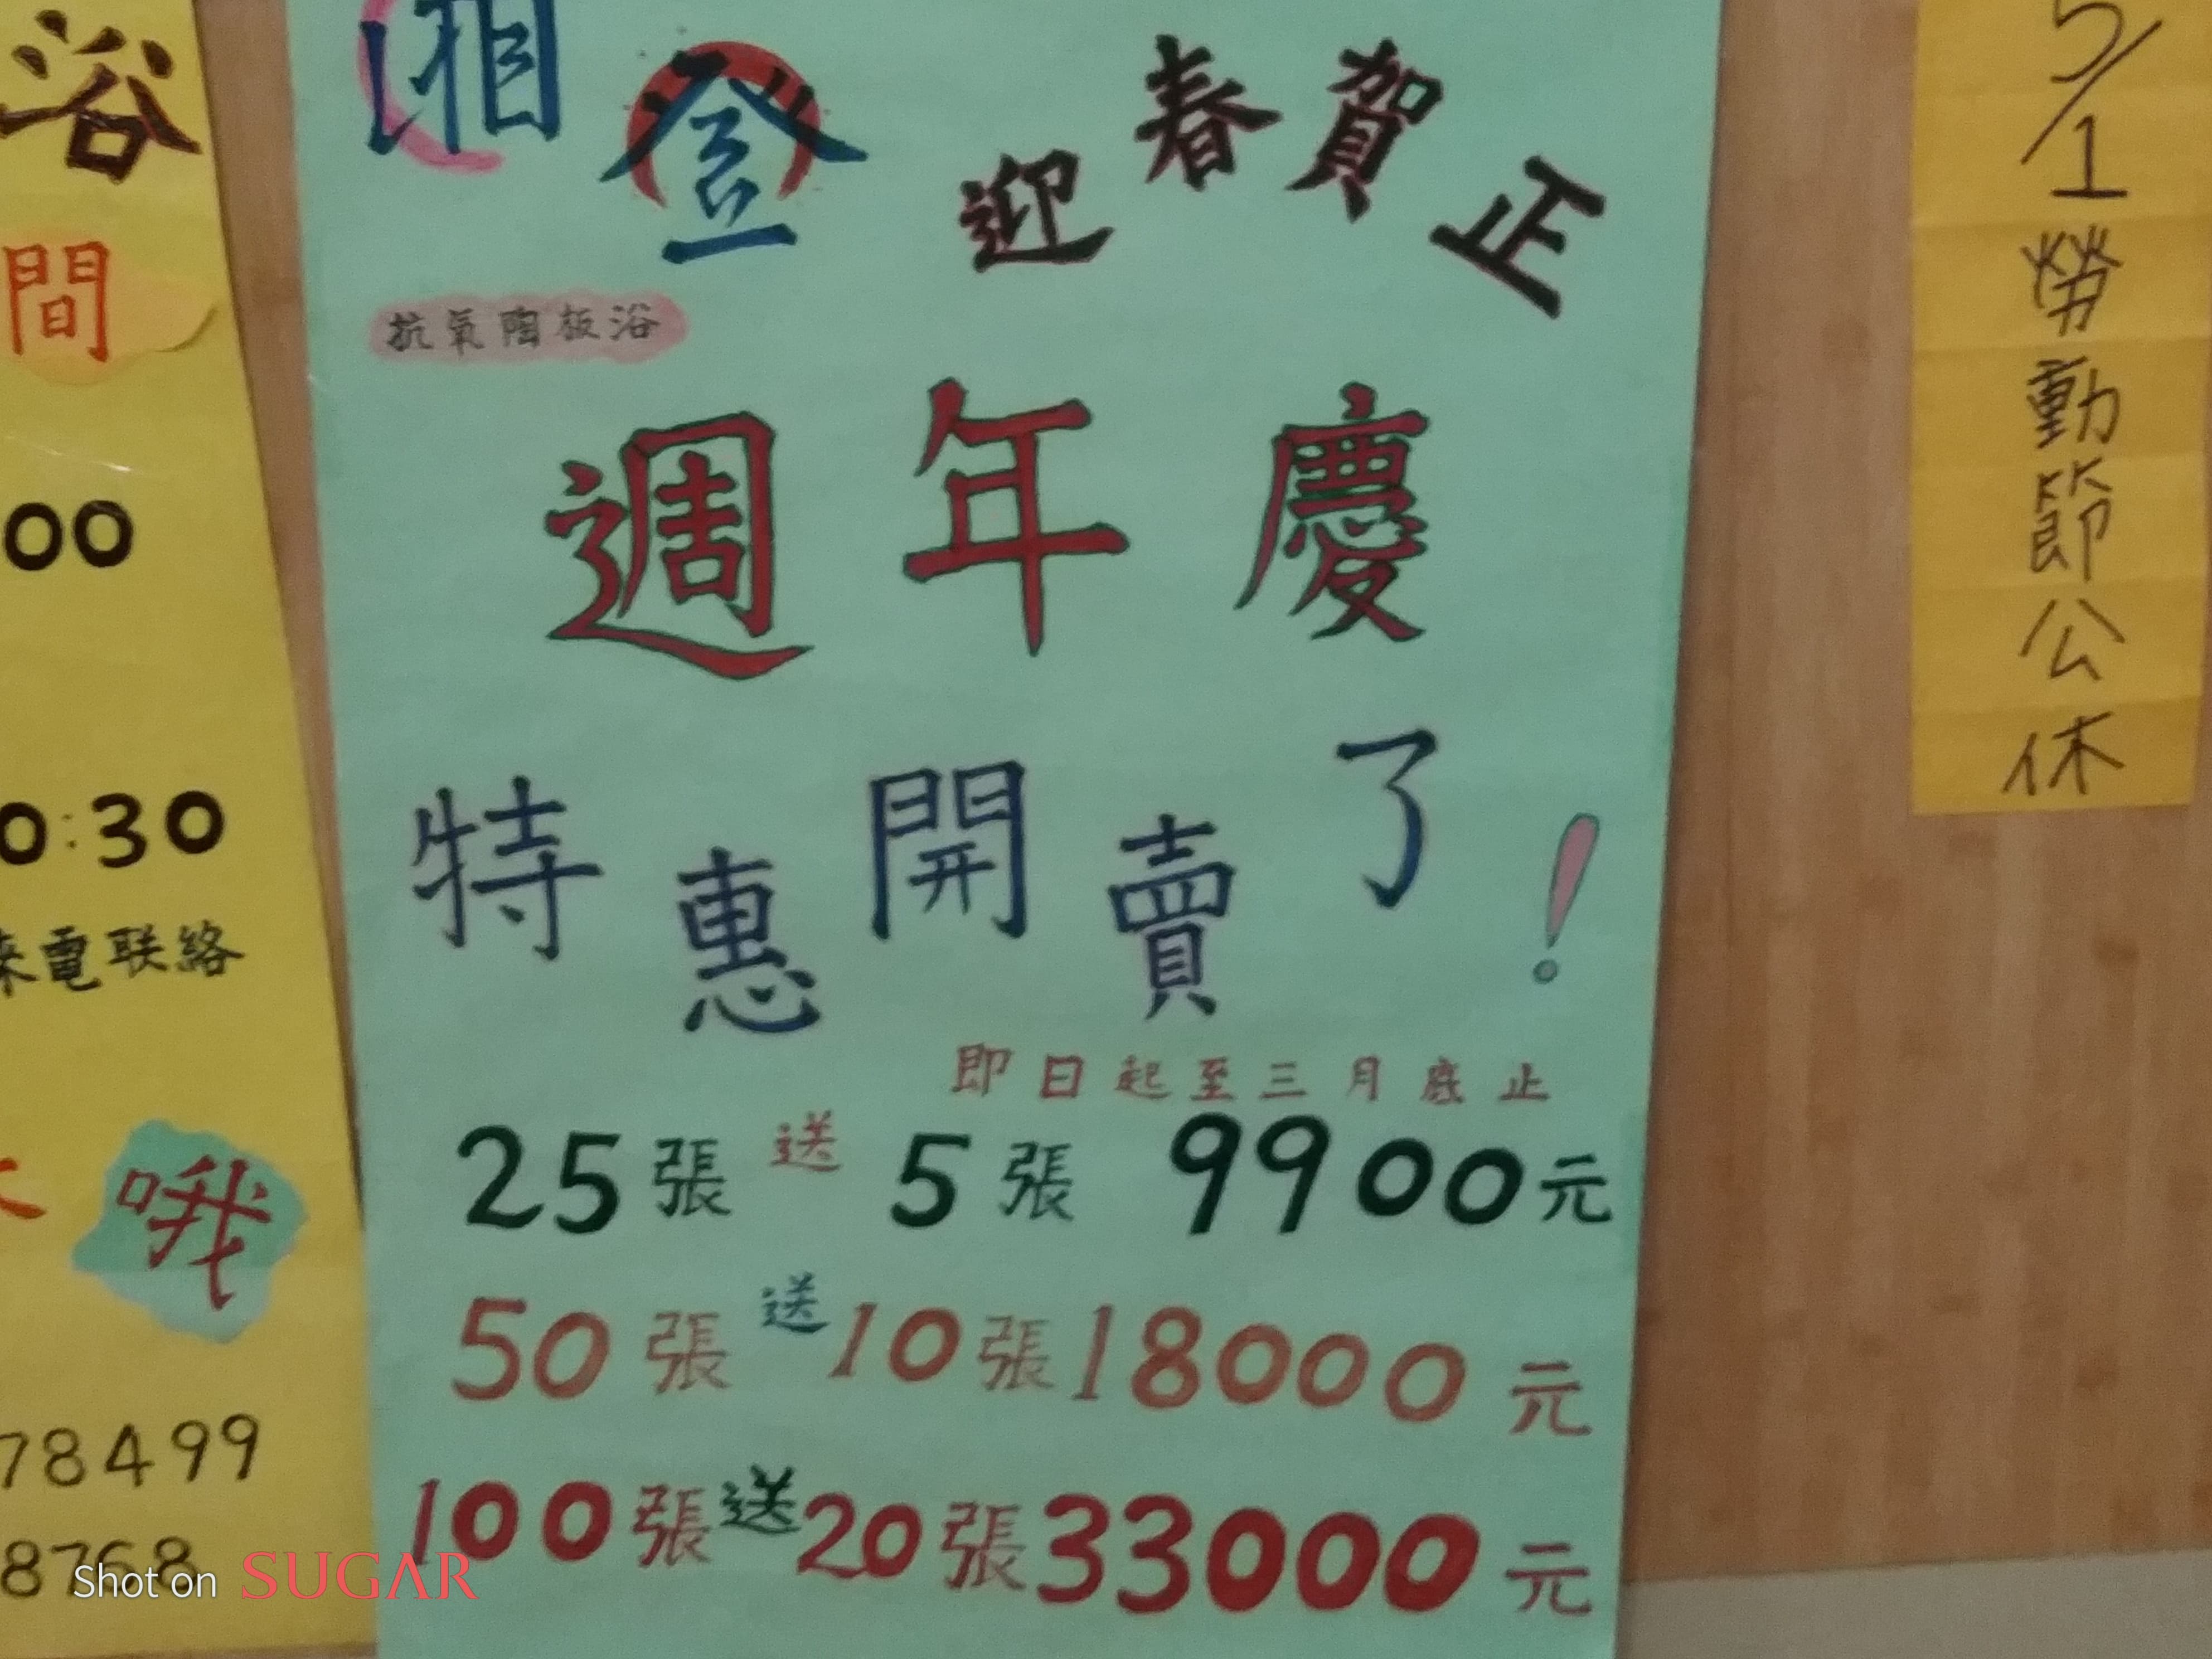 浴
間
00
0:30
來電联絡
哦
78499
8768
湘登
迎春賀正
抗氧陶板浴
週年慶
特惠開賣了!
即日起至三月底止
25張送5張 9900元
50張送10張18000元
100張送20張33000元
5/1勞動節公休
Shot on SUGAR